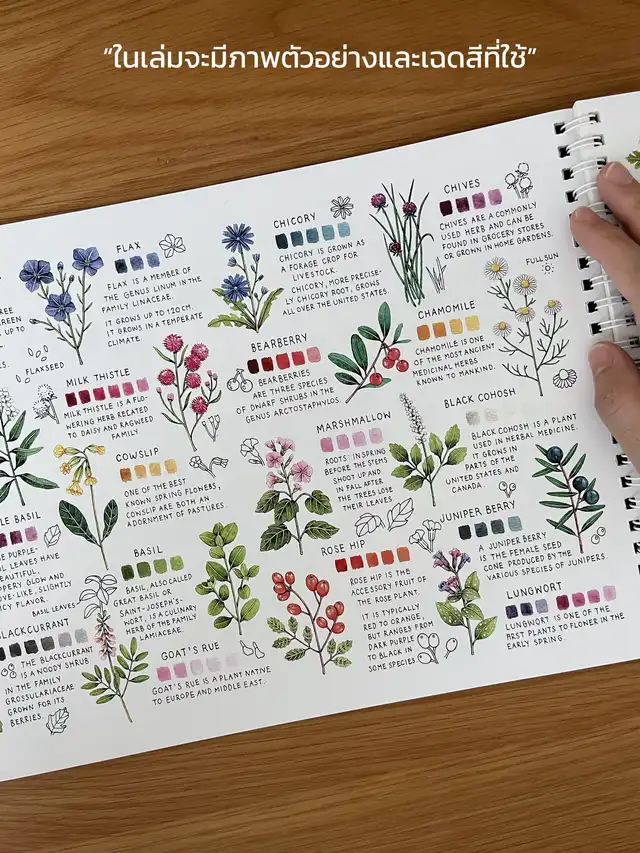 “ในเล่มจะมีภาพตัวอย่างและเฉดสีที่ใช้”
FLAX
FLAX IS A MEMBER OF
THE GENUS LINUM IN THE
FAMILY LINACEAE.
IT GROWS UP TO 120CM.
IT GROWS IN A TEMPERATE
CLIMATE.
FLAXSEED
CHICORY
CHICORY IS GROWN AS
A FORAGE CROP FOR
LIVESTOCK.
CHICORY, MORE PRECISE-
LY CHICORY ROOT, GROWS
ALL OVER THE UNITED STATES.
CHIVES
CHIVES ARE A COMMONLY
USED HERB AND CAN BE
FOUND IN GROCERY STORES
OR GROWN IN HOME GARDENS.
FULL SUN
MILK THISTLE
MILK THISTLE IS A FLO-
WERING HERB RELATED
TO DAISY AND RAGWEED
FAMILY.
BEARBERRY
BEARBERRIES
ARE THREE SPECIES
OF DWARF SHRUBS IN THE
GENUS ARCTOSTAPHYLOS.
CHAMOMILE
CHAMOMILE IS ONE
OF THE MOST ANCIENT
MEDICINAL HERBS
KNOWN TO MANKIND.
COWSLIP
ONE OF THE BEST
KNOWN SPRING FLOWERS,
COWSLIP ARE BOTH AN
ADORNMENT OF PASTURES.
MARSHMALLOW
ROOTS: IN SPRING
BEFORE THE STEMS
SHOOT UP AND
IN FALL AFTER
THE TREES LOSE
THEIR LEAVES
BLACK COHOSH
BLACK COHOSH IS A PLANT
USED IN HERBAL MEDICINE.
IT GROWS IN
PARTS OF THE
UNITED STATES AND
CANADA.
BASIL
THE PURPLE-
LEAVES HAVE
BASIL LEAVES
BASIL
BASIL, ALSO CALLED
GREAT BASIL OR
SAINT-JOSEPH'S-
WORT, IS A CULINARY
HERB OF THE FAMILY
LAMIACEAE.
ROSE HIP
ROSE HIP IS THE
ACCESSORY FRUIT OF
THE ROSE PLANT.
IT IS TYPICALLY
RED TO ORANGE,
BUT RANGES FROM
DARK PURPLE
TO BLACK IN
SOME SPECIES
JUNIPER BERRY
A JUNIPER BERRY
IS THE FEMALE SEED
CONE PRODUCED BY THE
VARIOUS SPECIES OF JUNIPERS.
BLACKCURRANT
THE BLACKCURRANT
IS A WOODY SHRUB
IN THE FAMILY
GROSSULARIACEAE
GROWN FOR ITS
BERRIES.
GOAT'S RUE
GOAT'S RUE IS A PLANT NATIVE
TO EUROPE AND MIDDLE EAST.
LUNGWORT
LUNGWORT IS ONE OF THE
FIRST PLANTS TO FLOWER IN THE
EARLY SPRING.